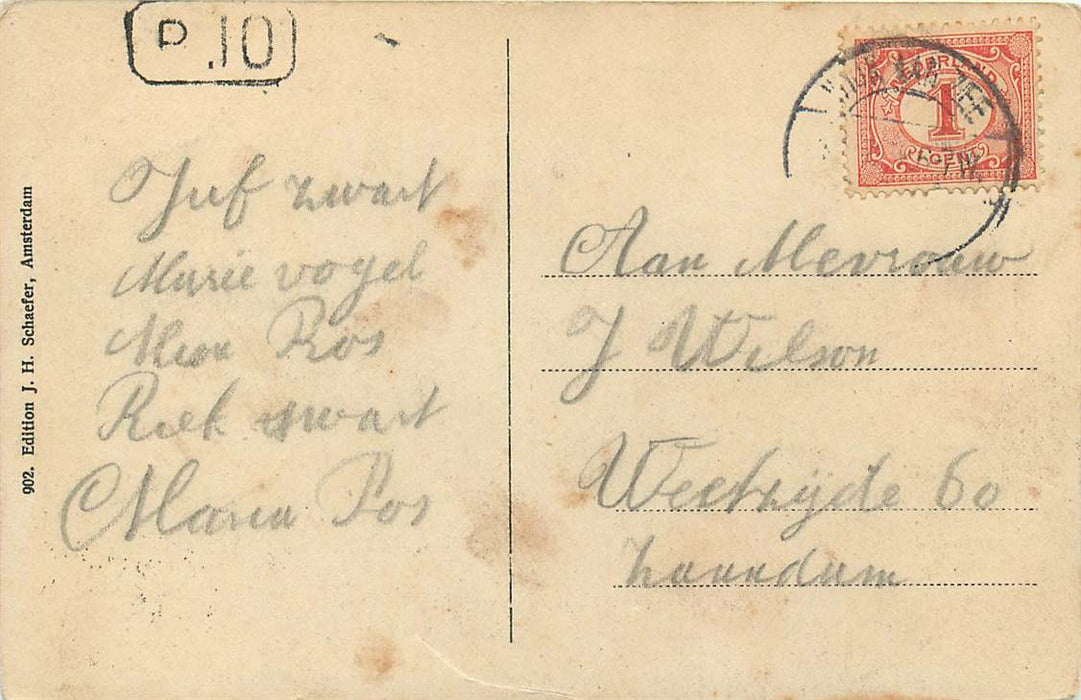 P.10
NEDERLAND
1
CENT
AAN ZEE
902. Edition J. H. Schaefer, Amsterdam
Juf zwart
Marie vogel
Pos
Riek zwart
Maria Pos
Aan Mevrouw
J Wilson
Westzijde 60
Zaandam